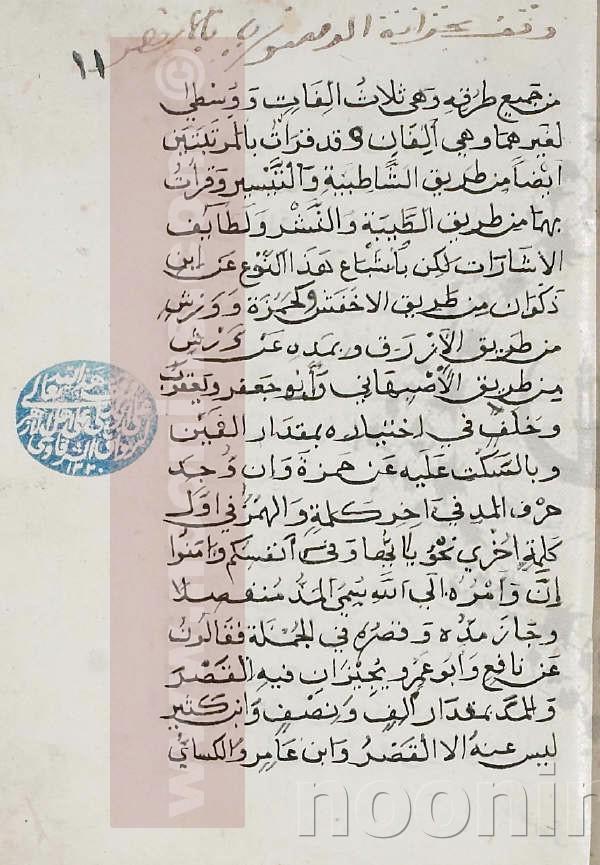 ١١
من جميع طرقه وهي ثلاث الفات ووسطي
لغيرهما وهي الفان وقد قرأت بالمرتبتين
ايضاً من طريق الشاطبية والتيسير وقرأت
بهما من طريق الطيبة والنشر ولطايف
الاشارات لكن باشباع هذا النوع عن ابن
ذكوان من طريق الاخفش ولحمزة وورش
من طريق الازرق وبمده عن ورش
من طريق الأصبهاني وأبو جعفر ويعقوب
وخلف في اختياره بمقدار الفين
وبالسكت عليه عن حمزة وان وجد
حرف المد في اخر كلمة والهمز في اول
كلمة اخري نحو يا ايها وفي انفسكم وامنوا
إن وأمره الي الله سمي المد منفصلا
وجاز مده وقصره في الجملة فقالون
عن نافع وابو عمرو يجيزان فيه القصر
والمد بمقدار ألف ونصف وابن كثير
ليس عنه الا القصر وابن عامر والكسائي
noonin